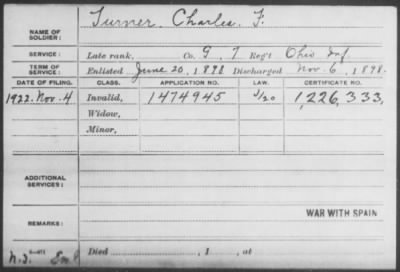 NAME OF SOLDIER: Turner, Charles F.
SERVICE: Late rank, Co. G 7 Reg't Ohio Inf
TERM OF SERVICE: Enlisted June 20, 1898 Discharged Nov. 6, 1898.
DATE OF FILING. CLASS. APPLICATION NO. LAW. CERTIFICATE NO.
1922. Nov. 4 Invalid, 1474945 J/20 1,226,333,
Widow,
Minor,
ADDITIONAL SERVICES:
WAR WITH SPAIN
REMARKS:
Died , 1 , at